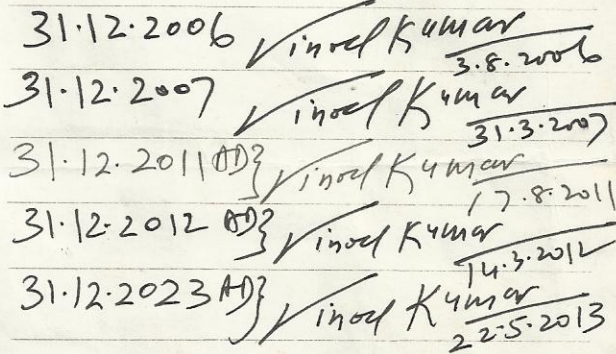 31.12.2006 Vinod Kumar
3.8.2006
31.12.2007 Vinod Kumar
31.3.2007
31.12.2011 AD} Vinod Kumar
17.8.2011
31.12.2012 AD} Vinod Kumar
14.3.2012
31.12.2023 AD} Vinod Kumar
22.5.2013